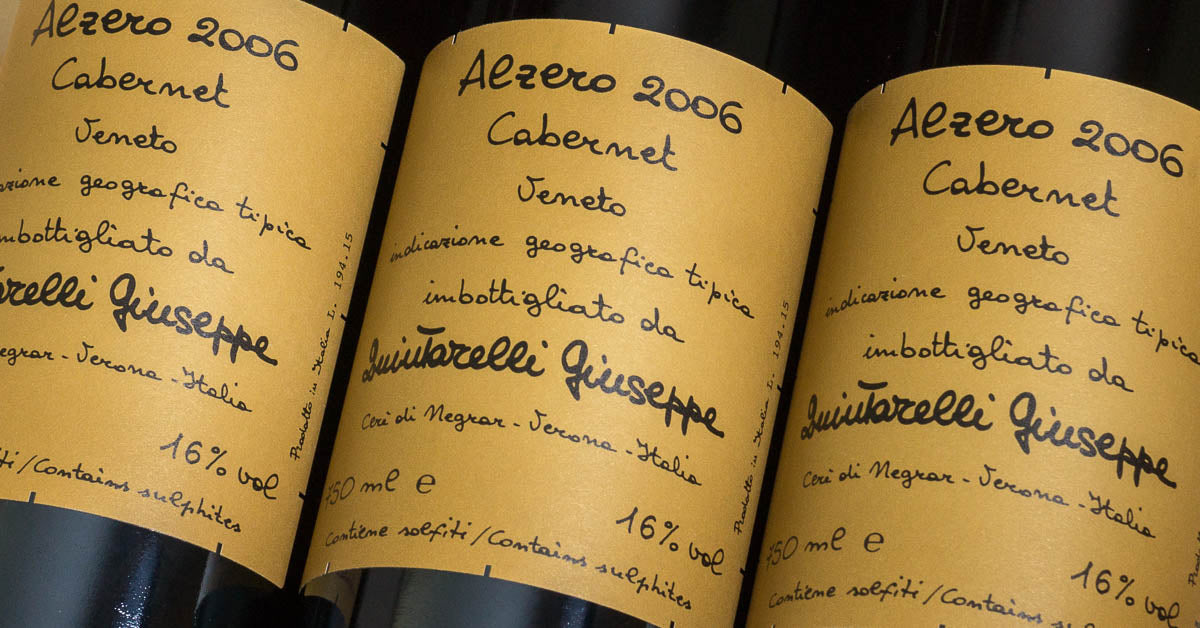 Alzero 2006
Cabernet
Veneto
geografica tipica
imbottigliato da
Giuseppe
Negrar - Verona - Italia
Prodotto in Italia L. 194.15
16% vol
/Contains sulphites
Alzero 2006
Cabernet
Veneto
indicazione geografica tipica
imbottigliato da
Quintarelli Giuseppe
Cerè di Negrar - Verona - Italia
Prodotto in Italia L. 194.15
750 ml e
16% vol
Contiene solfiti/Contains sulphites
Alzero 2006
Cabernet
Veneto
indicazione geografica tipica
imbottigliato da
Quintarelli Giuseppe
Cerè di Negrar - Verona - Italia
750 ml e
16% vol
Contiene solfiti/Contains